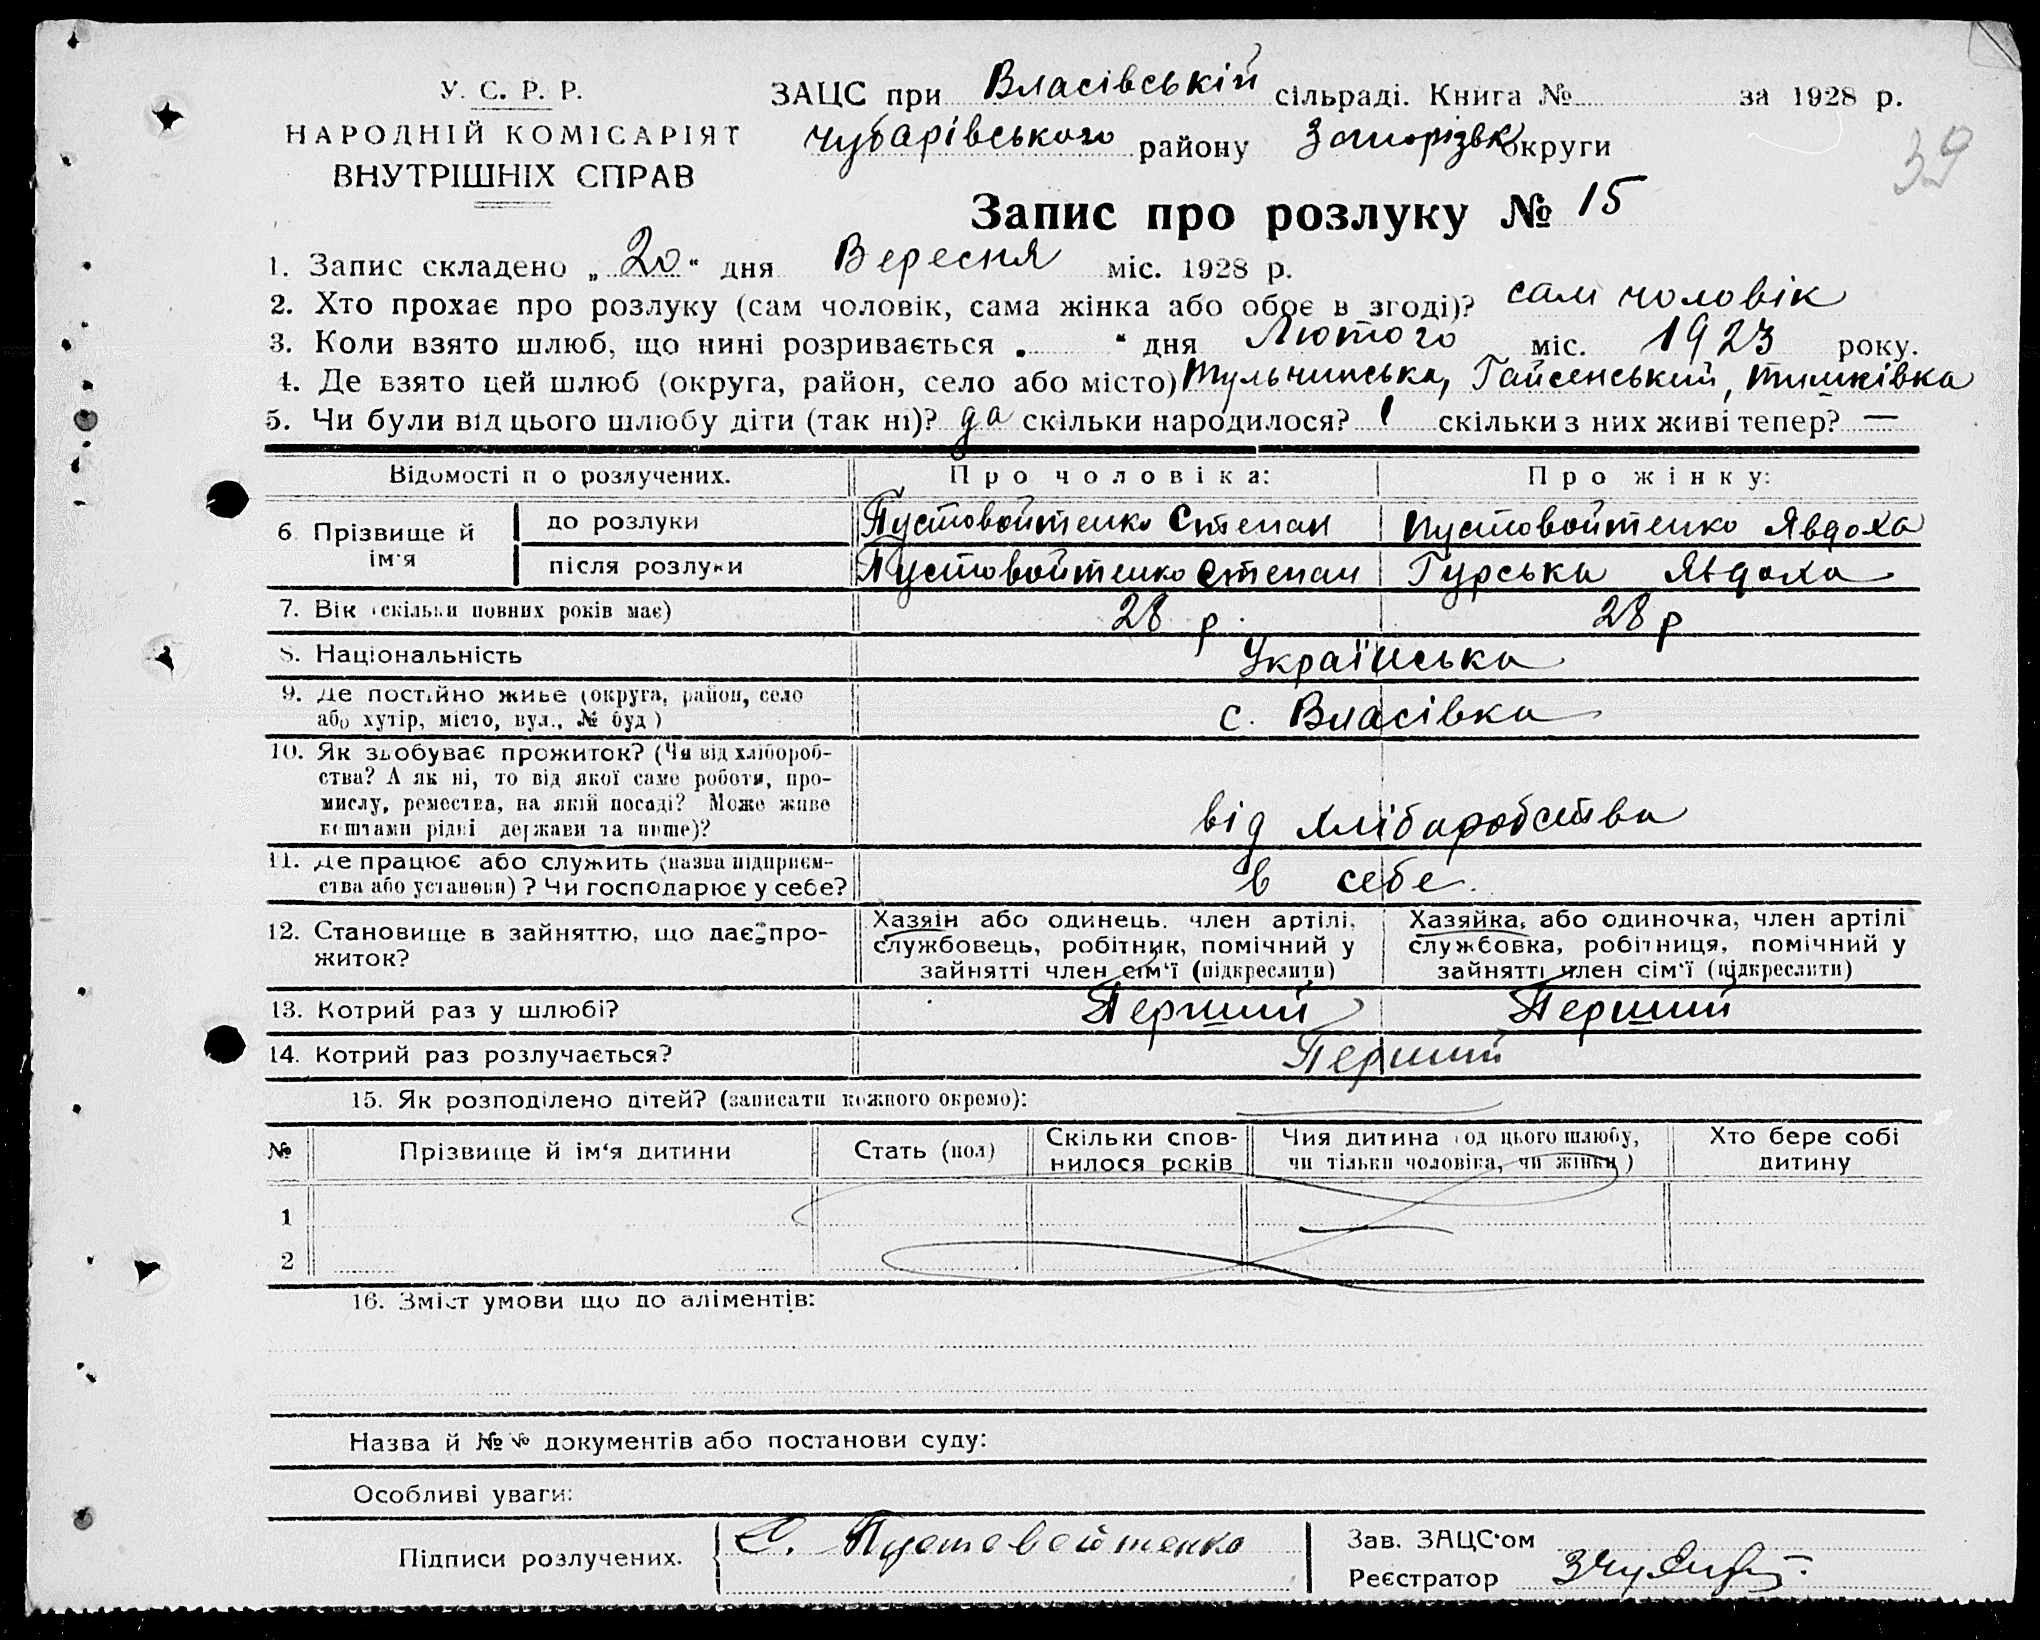 У. С. Р. Р.
НАРОДНІЙ КОМІСАРІЯТ
ВНУТРІШНІХ СПРАВ
ЗАЦС при Власівській сільраді. Книга № за 1928 р.
Чубарівського району Запорізьк округи
39
Запис про розлуку № 15
1. Запис складено „20“ дня Вересня міс. 1928 р.
2. Хто прохає про розлуку (сам чоловік, сама жінка або обоє в згоді)? сам чоловік
3. Коли взято шлюб, що нині розривається „ “ дня Лютого міс. 1923 року.
4. Де взято цей шлюб (округа, район, село або місто) Тульчинська, Гайсенський, Тишківка
5. Чи були від цього шлюбу діти (так ні)? да скільки народилося? 1 скільки з них живі тепер? —
Відомості п о розлучених. Про чоловіка: Про жінку:
6. Прізвище й ім'я до розлуки Пустовойтенко Степан Пустовойтенко Явдоха
після розлуки Пустовойтенко Степан Гурська Явдоха
7. Вік (скільки повних років має) 28 р. 28 р
8. Національність Українська
9. Де постійно живе (округа, район, село
або хутір, місто, вул., № буд) с. Власівка
10. Як здобуває прожиток? (Чи від хлібороб-
ства? А як ні, то від якої саме роботи, про-
мислу, ремества, на якій посаді? Може живе
коштами рідні держави та инше)? від хліборобства
11. Де працює або служить (назва підприєм-
ства або установи)? Чи господарює у себе? в себе.
12. Становище в зайняттю, що дає про-
житок?
Хазяін або одинець. член артілі,
службовець, робітник, помічний у
зайнятті член сім'ї (підкреслити)
Хазяйка, або одиночка, член артілі
службовка, робітниця, помічний у
зайнятті член сім'ї (підкреслити)
13. Котрий раз у шлюбі? Перший Перший
14. Котрий раз розлучається? Перший
15. Як розподілено дітей? (записати кожного окремо):
№ Прізвище й ім'я дитини Стать (пол) Скільки спов-
нилося років Чия дитина (од цього шлюбу,
чи тільки чоловіка, чи жінки) Хто бере собі
дитину
1
2
16. Зміст умови що до аліментів:
Назва й №№ документів або постанови суду:
Особливі уваги:
Підписи розлучених. С. Пустовойтенко
Зав. ЗАЦС'ом
Реєстратор